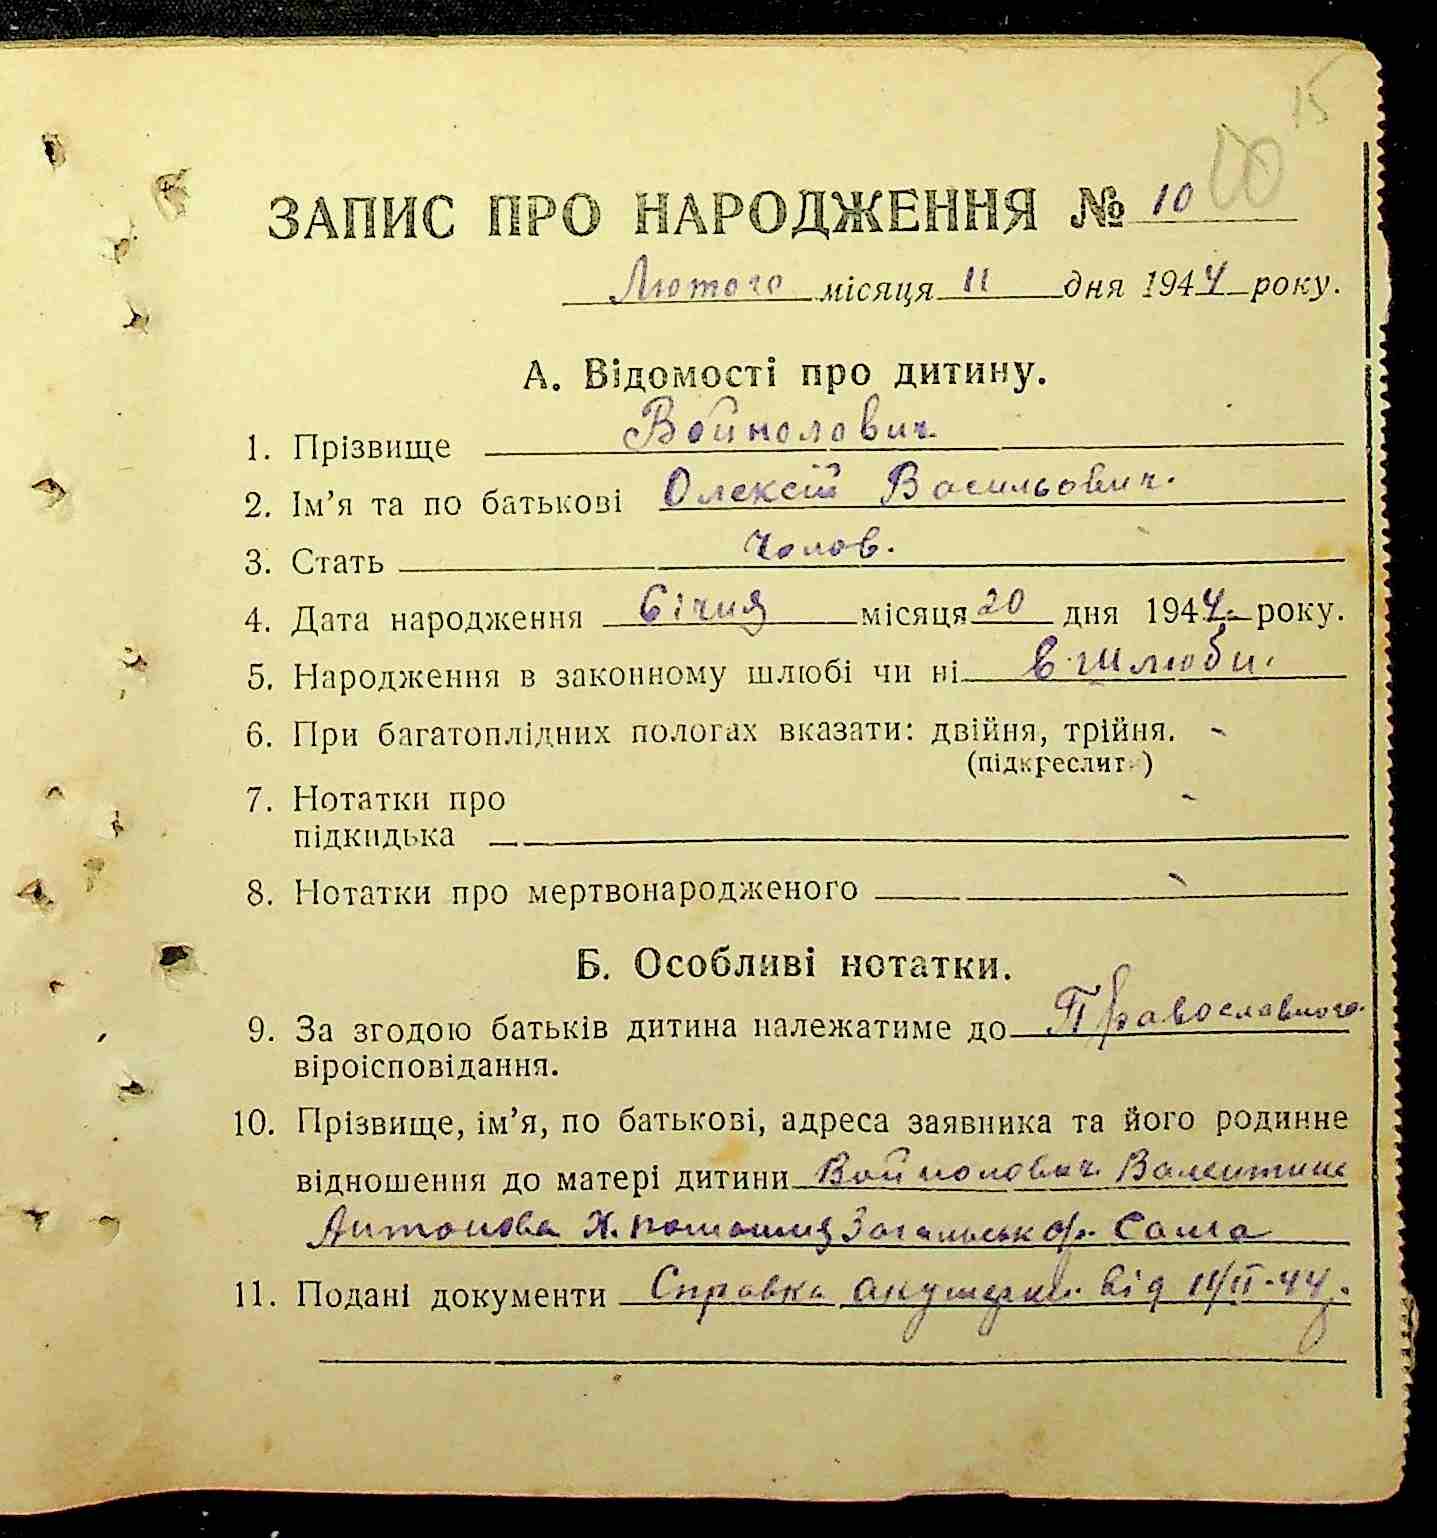 15
ЗАПИС ПРО НАРОДЖЕННЯ № 10
Лютого місяця 11 дня 1944 року.
А. Відомості про дитину.
1. Прізвище Войнолович
2. Ім’я та по батькові Олексій Васильович.
3. Стать Чолов.
4. Дата народження Січня місяця 20 дня 1944 року.
5. Народження в законному шлюбі чи ні в шлюби.
6. При багатоплідних пологах вказати: двійня, трійня. -
(підкреслить)
7. Нотатки про -
підкидька
8. Нотатки про мертвонародженого -
9. За згодою батьків дитина належатиме до Православного
віроісповідання.
Б. Особливі нотатки.
10. Прізвище, ім’я, по батькові, адреса заявника та його родинне
відношення до матері дитини Войнолович Валентина
Антонова Х. Сама
11. Подані документи Справка акушерки від 11/II-44р.